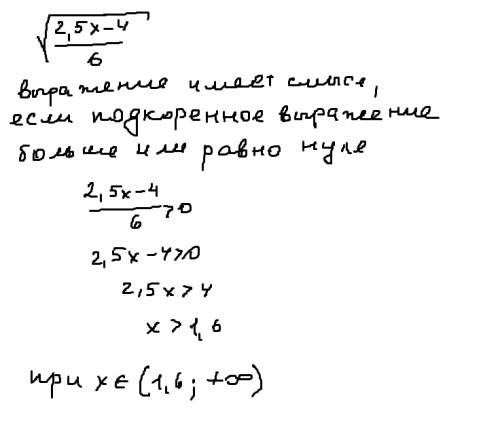 √((2,5x-4)/6)
выражение имеет смысл,
если подкоренное выражение
больше или равно нуле
(2,5x-4)/6>0
2,5x-4>0
2,5x>4
x>1,6
при x∈(1,6; +∞)